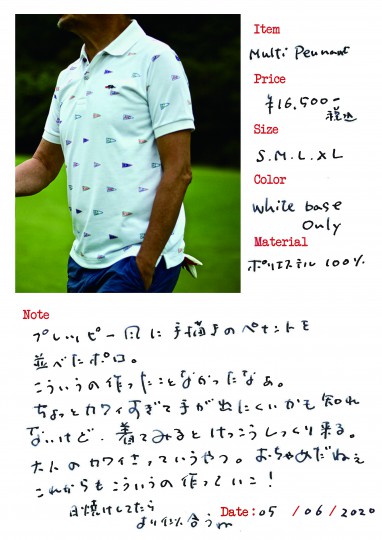 Item
Multi Pennant
Price
¥16,500-
税込
Size
S.M.L.XL
Color
White base
Only
Material
ポリエステル 100%
Note
プレッピー風に手描きのペナントを
並べたポロ。
こういうの作ったことなかったなぁ。
ちょっとカワイすぎて手が出にくいかも知れ
ないけど、着てみるとけっこうしっくり来る。
大人のカワイさっていうやつ。おちゃめだねぇ
これからもこういうの作っていこ!
日焼けしてたら
より似合うm
Date:05 /06/2020